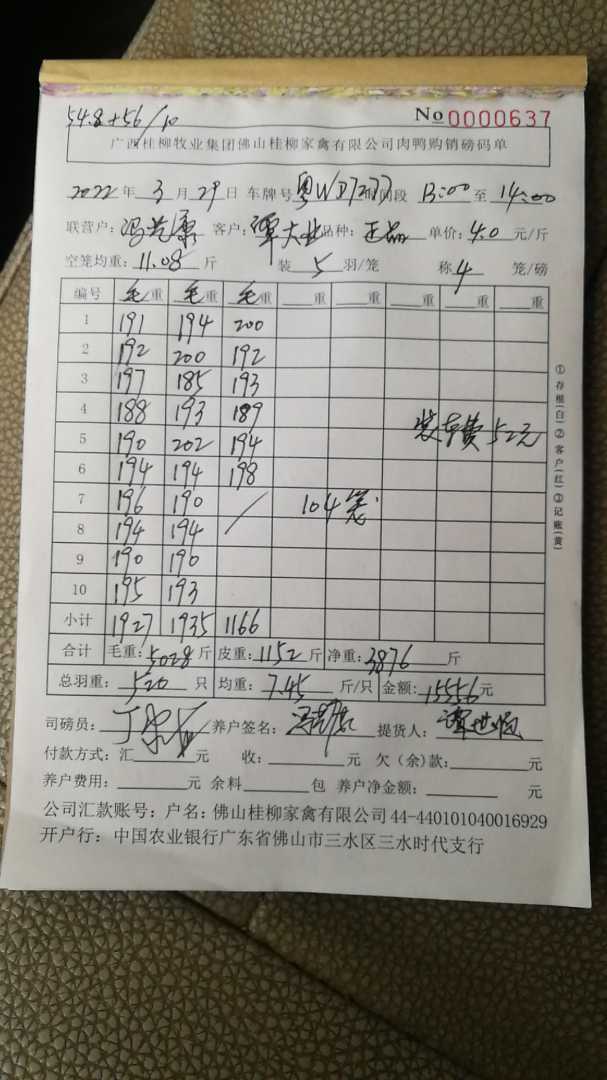 54.8+56/10
No 0000637
广西桂柳牧业集团佛山桂柳家禽有限公司肉鸭购销磅码单
2022年3月29日 车牌号 粤 时间段 13:00至14:00
联营户: 客户:谭大业 品种:正品 单价:4.0元/斤
空笼均重:11.08斤 装5羽/笼 称4笼/磅
编号 毛/重 毛重 毛重 重 重 重 重
1 191 194 200
2 192 200 192
3 197 185 193
4 188 193 189
装车费52元
5 190 202 194
6 194 194 198
7 196 190 / 104笼
8 194 194
9 190 190
10 195 193
小计 1927 1935 1166
合计 毛重:5028斤 皮重:1152斤 净重:3876斤
总羽重:520只 均重:7.45斤/只 金额:15556元
司磅员: 养户签名: 提货人:
付款方式:汇 元 收: 元 欠(余)款: 元
养户费用: 元 余料 包 养户净金额: 元
公司汇款账号:户名:佛山桂柳家禽有限公司44-440101040016929
开户行:中国农业银行广东省佛山市三水区三水时代支行
①存根(白)②客户(红)③记账(黄)